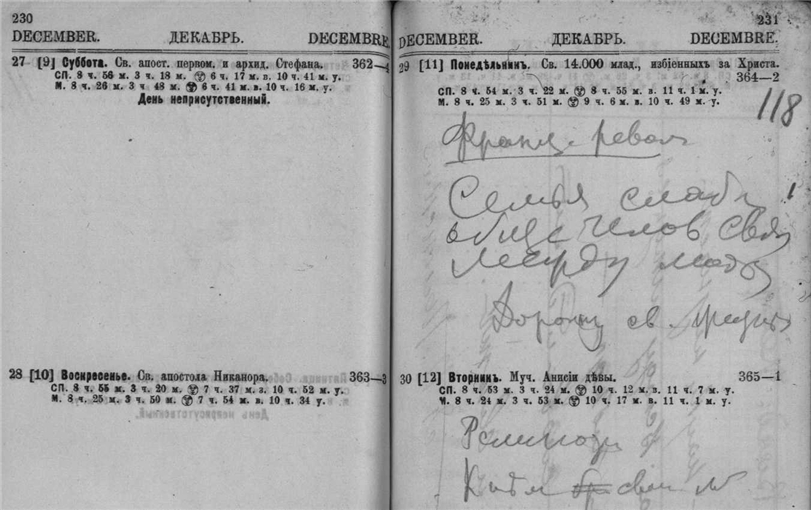 230
DECEMBER. ДЕКАБРЬ. DECEMBRE.
27 [9] Суббота. Св. апост. первом. и архид. Стефана. 362—4
СП. 8 ч. 56 м. 3 ч. 18 м. 6 ч. 17 м. в. 10 ч. 41 м. у.
М. 8 ч. 26 м. 3 ч. 48 м. 6 ч. 41 м. в. 10 ч. 16 м. у.
День неприсутственный.
28 [10] Воскресенье. Св. апостола Никанора. 363—3
СП. 8 ч. 55 м. 3 ч. 20 м. 7 ч. 37 м. з. 10 ч. 52 м. у.
М. 8 ч. 25 м. 3 ч. 50 м. 7 ч. 54 м. в. 10 ч. 34 у.
231
DECEMBER. ДЕКАБРЬ. DECEMBRE.
29 [11] Понедѣльникъ. Св. 14.000 млад., избіенныхъ за Христа.
364—2
СП. 8 ч. 54 м. 3 ч. 22 м. 8 ч. 55 м. в. 11 ч. 1 м. у.
М. 8 ч. 25 м. 3 ч. 51 м. 9 ч. 6 м. в. 10 ч. 49 м. у.
118
Франц. револ
Семья слаб
общечелов свя
между
св.
30 [12] Вторникъ. Муч. Анисіи дѣвы. 365—1
СП. 8 ч. 53 м. 3 ч. 24 м. 10 ч. 12 м. в. 11 ч. 7 м. у.
М. 8 ч. 24 м. 3 ч. 53 м. 10 ч. 17 м. в. 11 ч. 1 м. у.